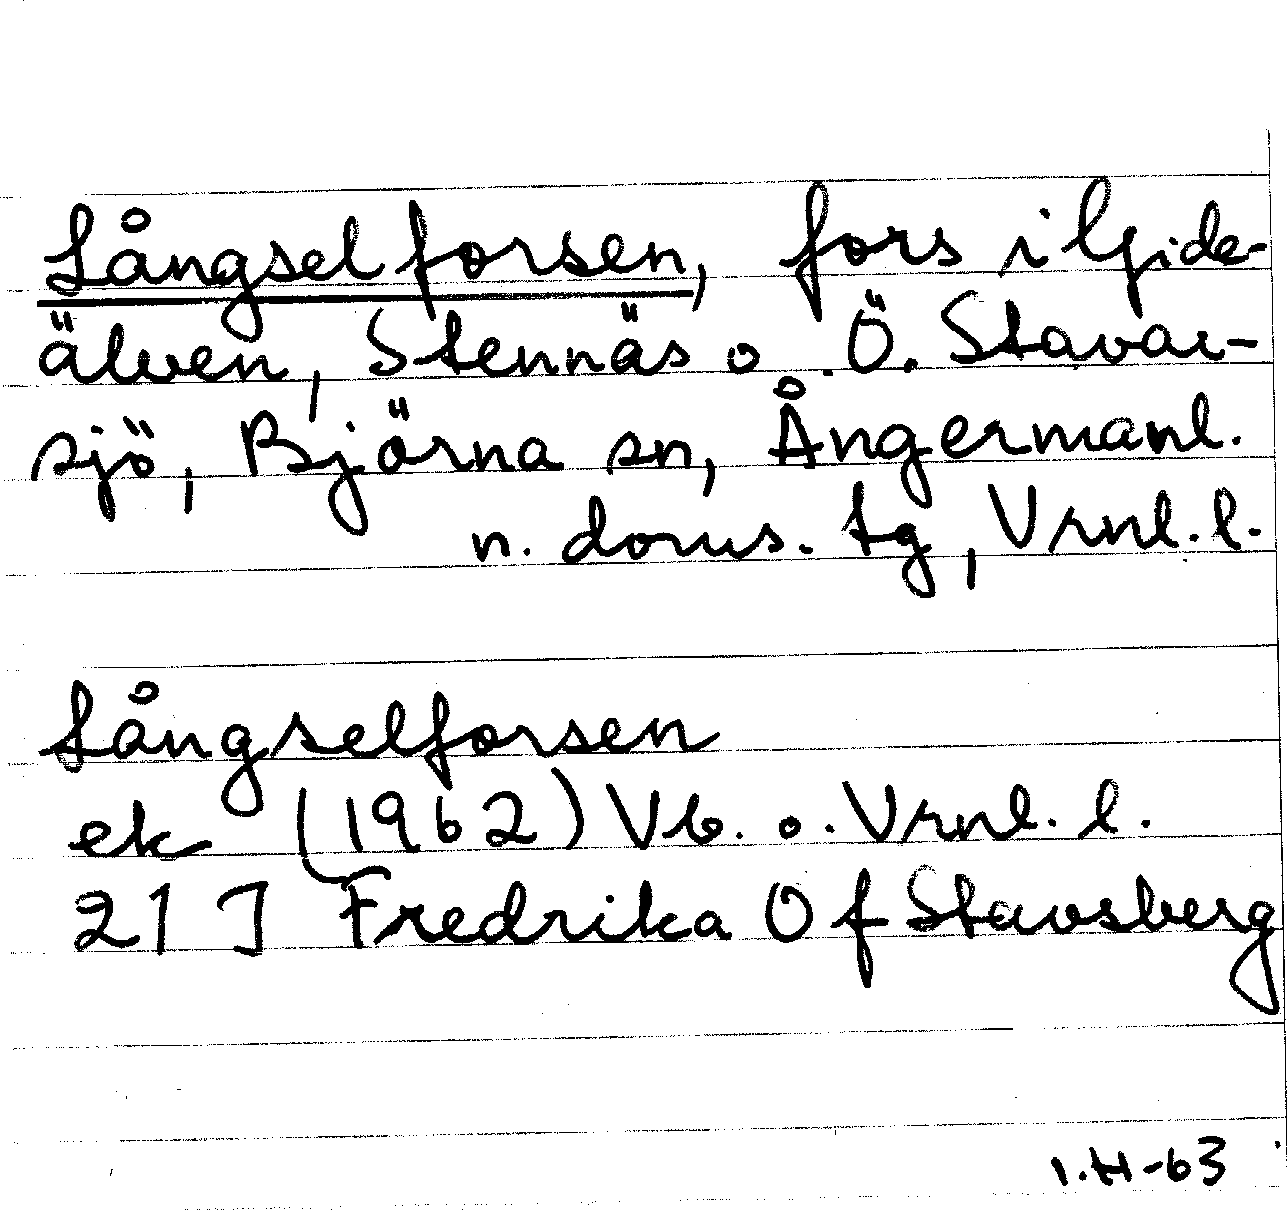 Långselforsen, fors i Gide-
älven, Stennäs o. Ö. Stavar-
sjö, Björna sn, Ångermanl.
n. doms. tg, Vrnl. l.
Långselforsen
ek (1962) Vb. o. Vrnl. l.
21 J Fredrika O f Stavsberg
I.H-63